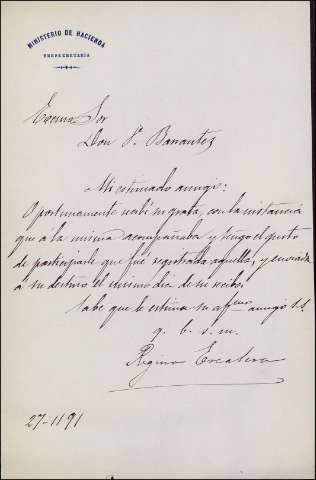 MINISTERIO DE HACIENDA
SUBSECRETARÍA
Excmo Sor
Don V. Barrantes
Mi estimado amigo:
Oportunamente recibí su grata, con la instancia
que á la misma acompañaba y tengo el gusto
de participarle que fué registrada aquella, y enviada
á su destino el mismo dia de su recibo.
Sabe que le estima su affmo amigo S.S.
q. b. s. m.
Regino Escalera
27-11 91